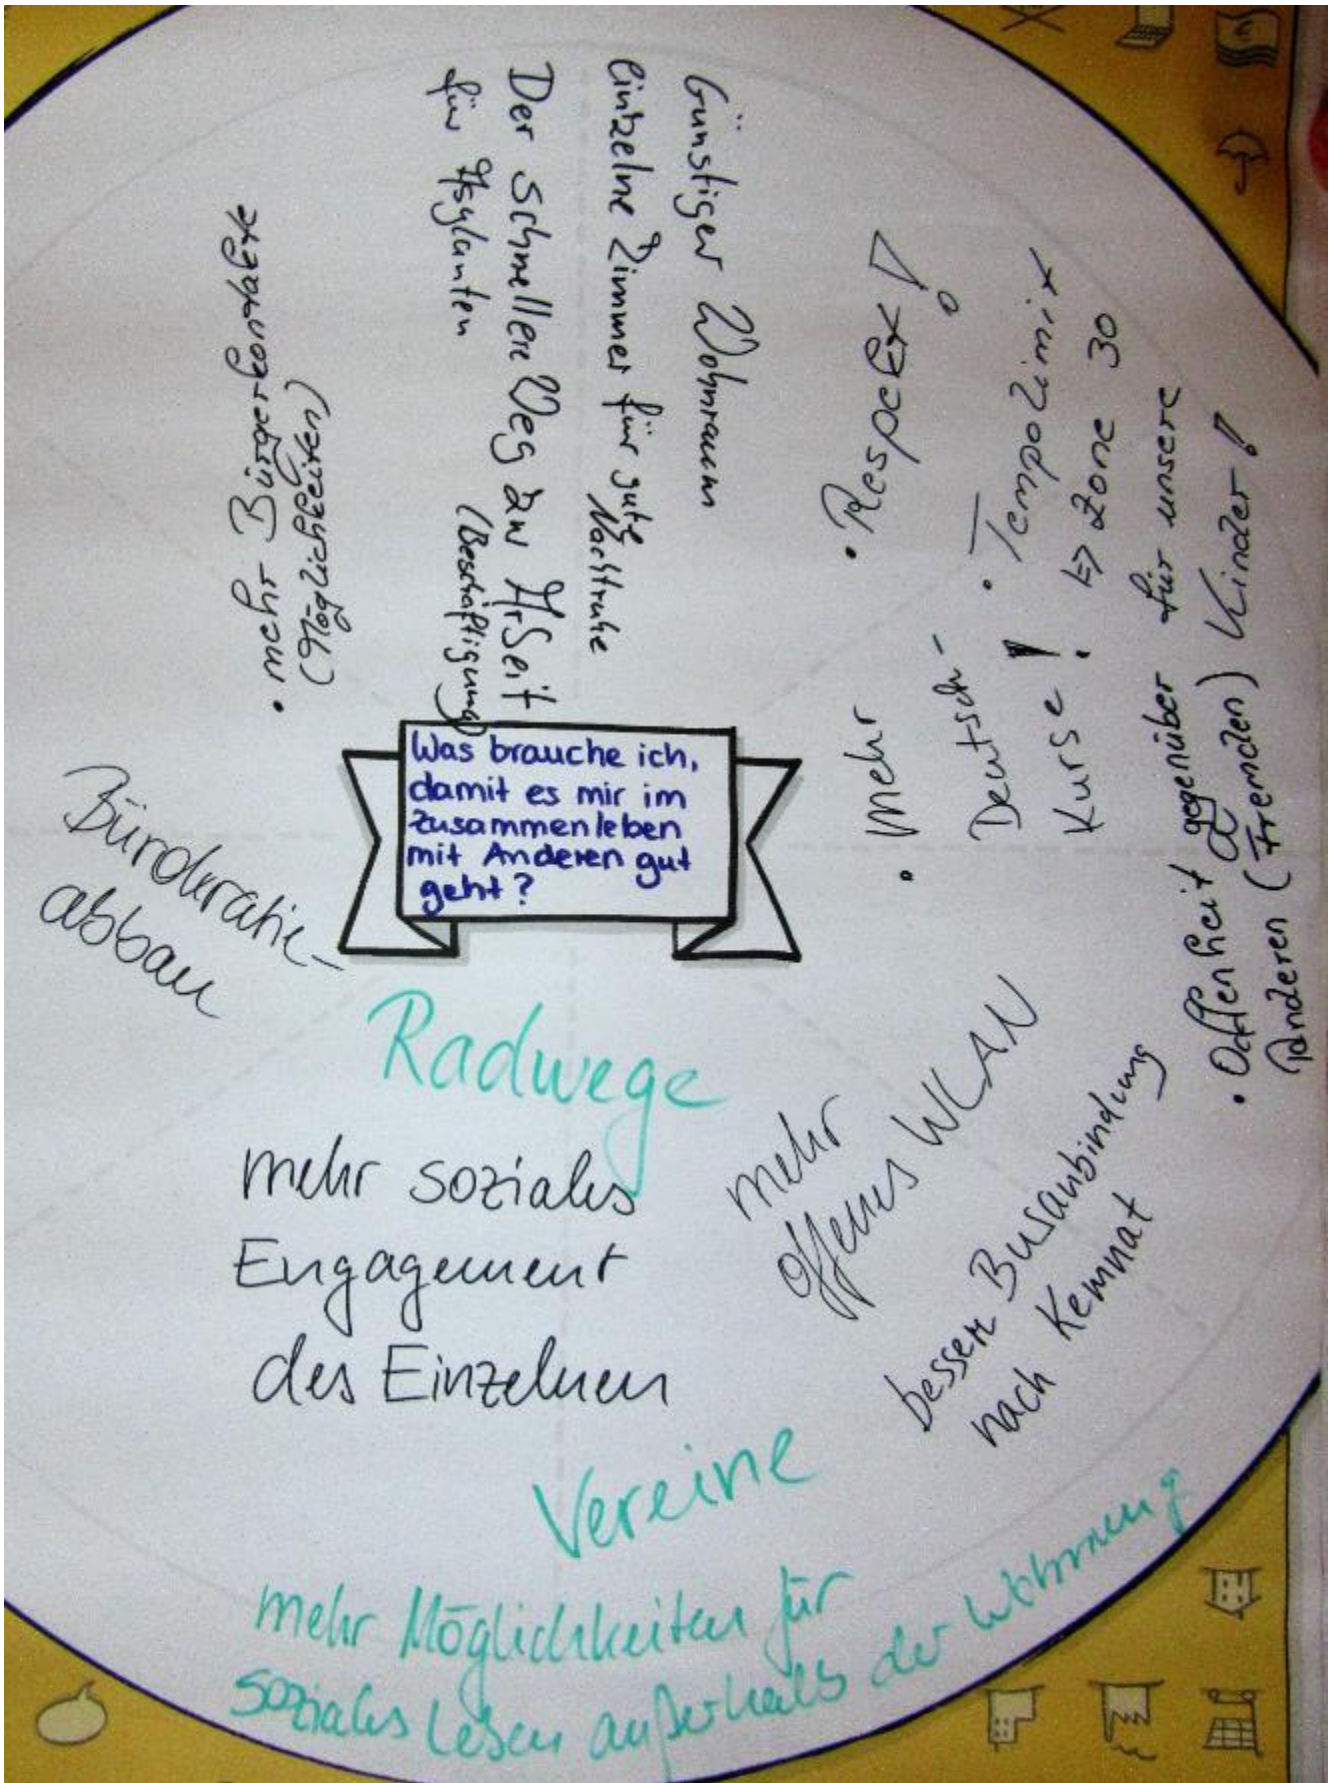 Was brauche ich,
damit es mir im
Zusammenleben
mit Anderen gut
geht?
Günstiger Wohnraum
einzelne Zimmer für gute
Nachtruhe
Der schnellere Weg zur Arbeit
für Asylanten
(Beschäftigung)
• mehr Bürgerkontakte
(Möglichkeiten)
• Respekt!
• Tempolimit
=> Zone 30
für unsere
Kinder!
• mehr
Deutsch-
Kurse!
• Offenheit gegenüber
Anderen (Fremden)
Bürokratie-
abbau
Radwege
mehr soziales
Engagement
des Einzelnen
mehr
offenes WLAN
bessere Busanbindung
nach Kemnat
Vereine
mehr Möglichkeiten für
soziales Leben außerhalb der Wohnung